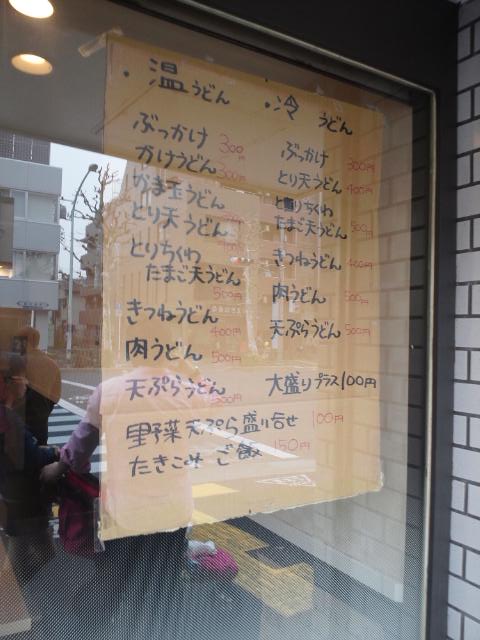 ・温うどん
ぶっかけ 300
かけうどん 300円
かま玉うどん
とり天うどん
とりちくわ
たまご天うどん
500円
きつねうどん
400円
肉うどん 500円
天ぷらうどん
500円
・冷うどん
ぶっかけ 300円
とり天うどん 400円
とりちくわ
たまご天うどん 500円
きつねうどん 400円
肉うどん 500円
天ぷらうどん 500円
大盛りプラス100円
野菜天ぷら盛り合せ 100円
たきこめご飯 150円